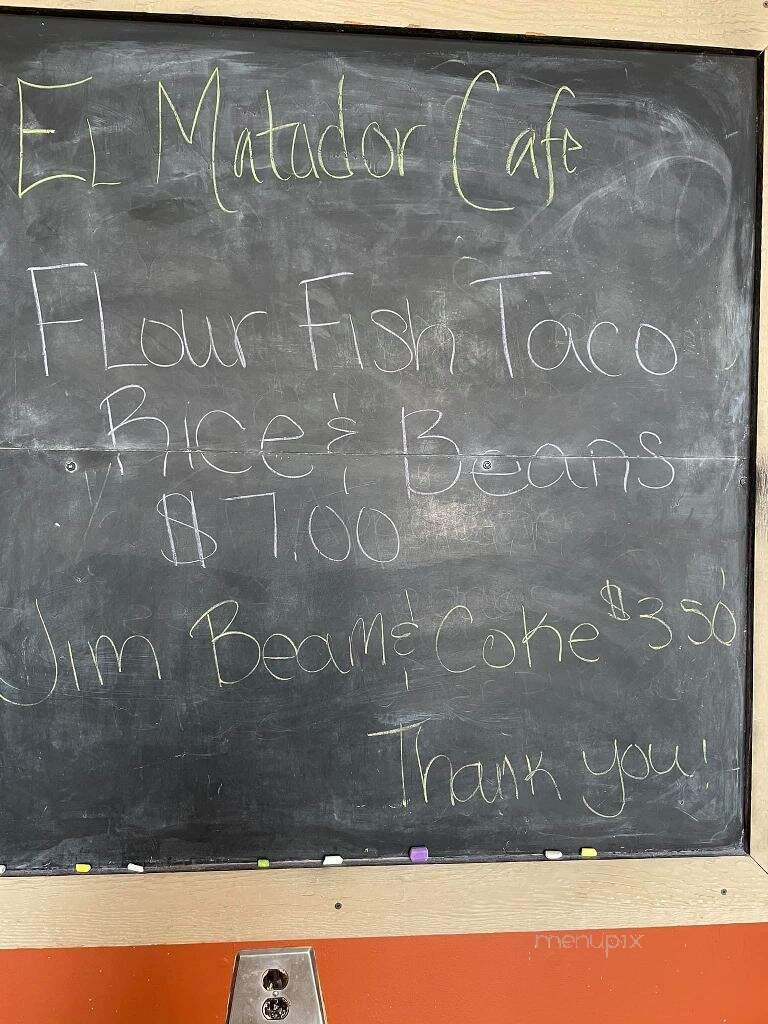 EL Matador Cafe
FLour Fish Taco
Rice & Beans
$7.00
Jim Beam & Coke $3.50
Thank you!
menupix